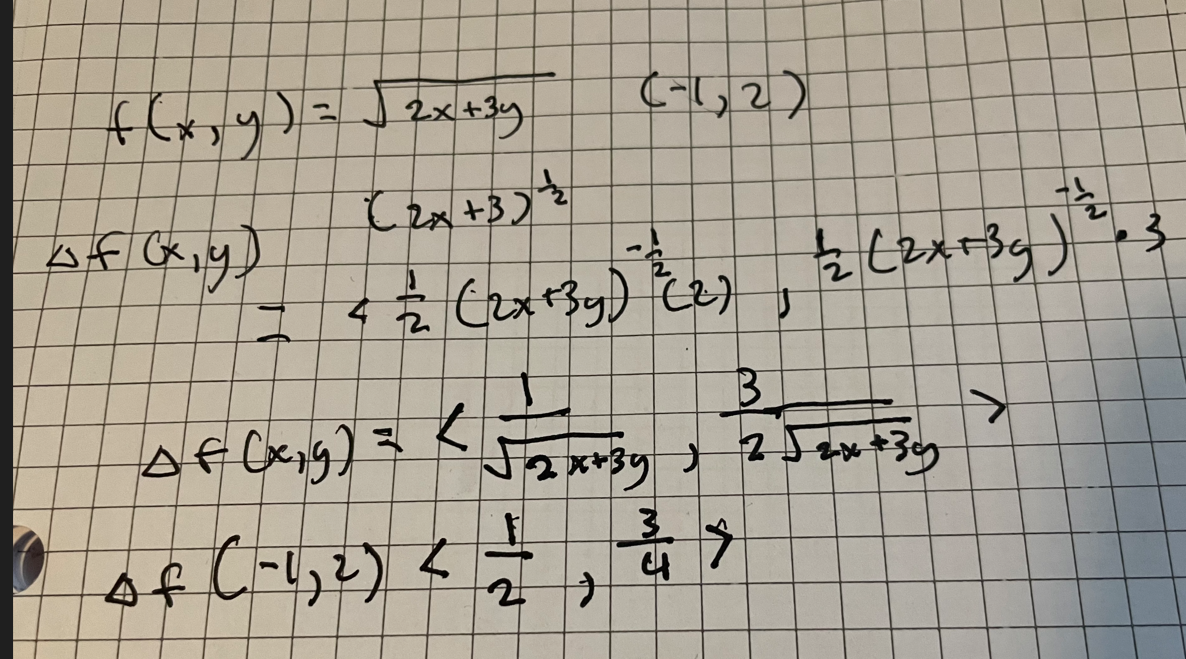 f(x,y) = √(2x+3y) (-1,2)
(2x+3)^½
Δf(x,y)
= < ½ (2x+3y)^-½ (2) , ½ (2x+3y)^-½ · 3
Δf(x,y) = < 1/√(2x+3y) , 3/(2√(2x+3y)) >
Δf(-1,2) < 1/2 , 3/4 >